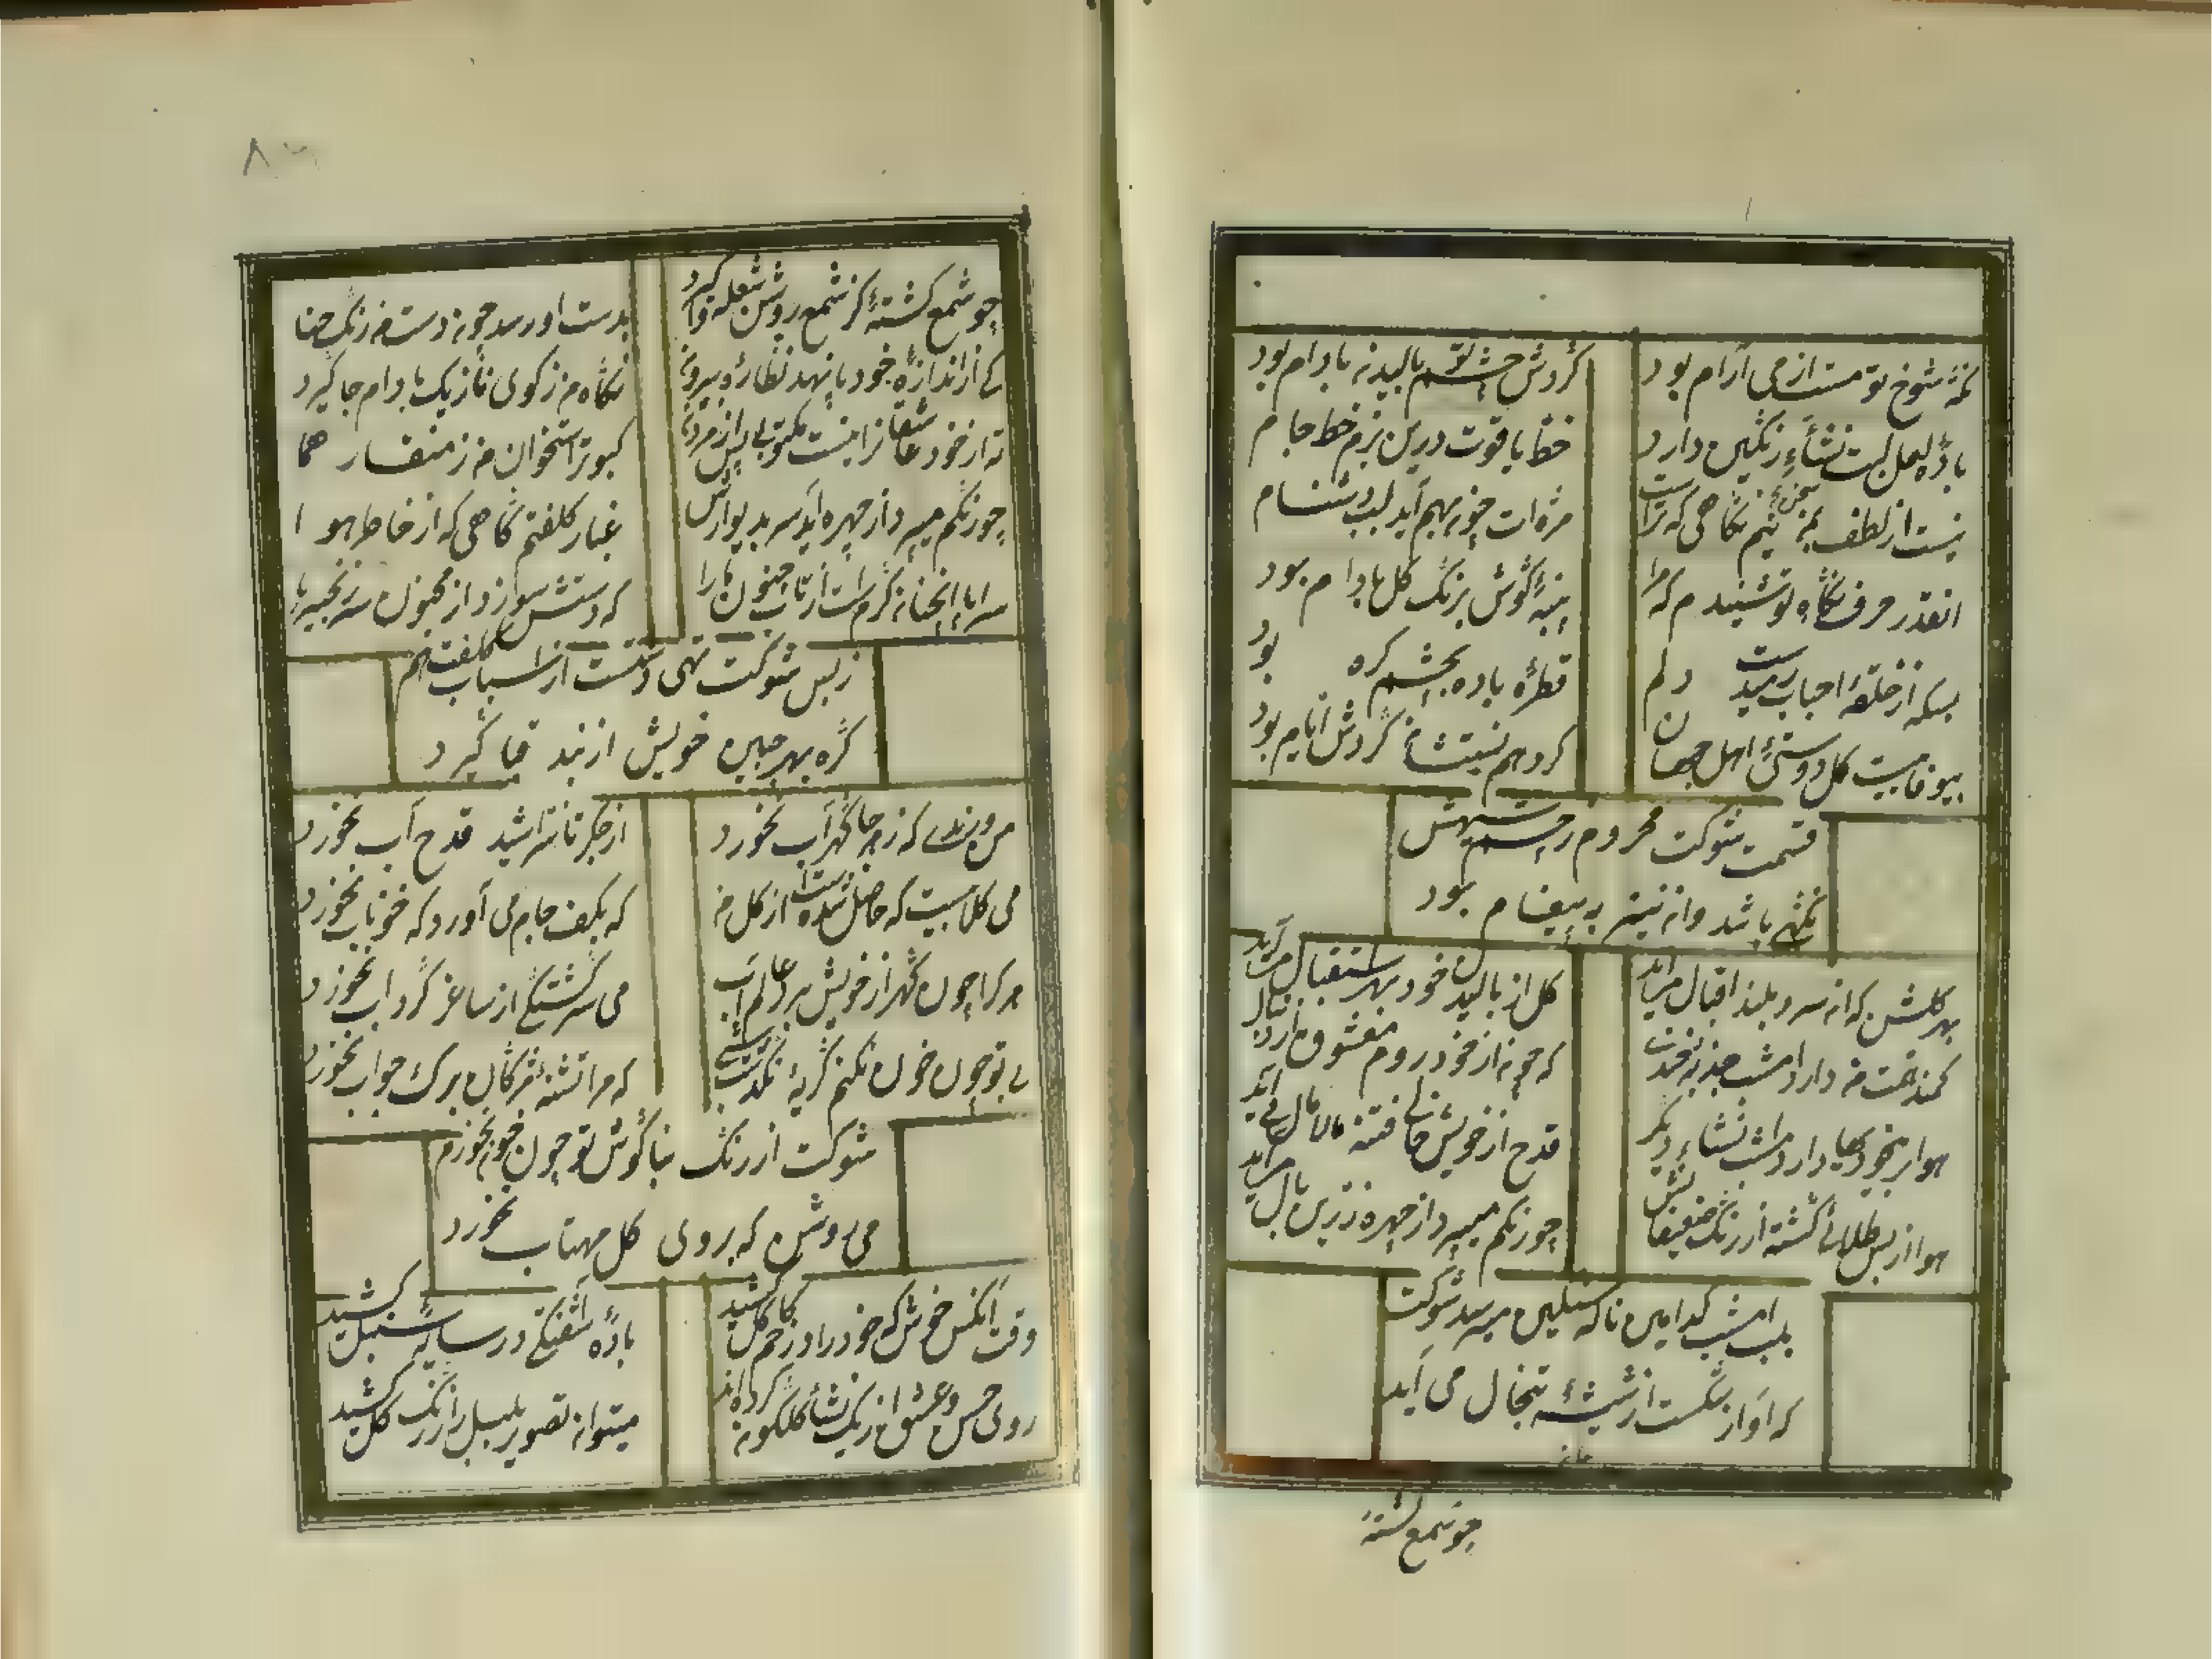 غمزهٔ شوخ تو مست از می آرام بود
گردش چشم تو بالیدن بادام بود
بادهٔ لعل لبت نشأء رنگین دارد
خط یاقوت درین بزم خط جام
نیست از لطف نیم نگاهی که تراست
مژه ات چون بهم آید لب دشنام
انقدر حرف نگاه تو شنیدم که مرا
پنبهٔ گوش برنگ گل بادام بود
بسکه از حلقهٔ احباب رمیدست دلم
قطرهٔ باده بچشم گره بود
بیوفاییت گل دوستی اهل جهان
گردهم نیستشان گردش ایام بود
قسمت شوکت محروم ز چشم سیهش
نگهی باشد وان نیز به پیغام بود
بهر گلشن که ان سرو بلند اقبال می آید
گل از بالیدن خود بهر استقبال می آید
کمند بخت من دارد امشب جذبه
که چون از خود روم معشوق از دنبال
هوای بیخودیها دارد امشب نشاء دیگر
قدح از خویش خالی فتنه مالامال می آید
هوا از بس طلائی گشته از رنگ ضعیفانش
چو رنگم میپرد از چهره زرین بال می آید
بلب امشب کدامین ناله سنگین میرسد شوکت
که آواز شکست از شیشهٔ تبخال می آید
چو شمع کشتهٔ
چو شمع کشتهٔ کز شمع روشن شعله وا گیرد
بدست او رسد چون دست من رنگ حنا
که از اندازهٔ خود پا نهد نظاره بیرون
نگاه من ز کوی ناز یک بادام جا گیرد
نه از خود عاشقانرا نیست مکتوبی پس از مردن
کبوتر استخوان من ز منقار هما
چو رنگم میپرد از چهره آید سر بدیوارش
غبار کلفتم گاهی که از خاطر هوا
سراپا انچنان گرم است از تاب جنون ما را
که دستش سوزد از مجنون سر زنجیر پا
ز بس شوکت تهی دستست از اسباب کلفت هم
گره بهر جبین خویش از بند قبا گیرد
من و رندے که ز هر جا گهر آب نخورد
از جگر تا نتراشید قدح آب نخورد
می گلابیست که حاصل شده است از گل من
که بکف جام می آورد که خوناب نخورد
هر کرا چون گهر از خویش برد عالم آب
می سرگشتگی از ساغر گرداب نخورد
بی تو چون خون نکنم گریهٔ نگذشت شبی
که مرا تشنهٔ مژگان برگ خواب نخورد
شوکت از رنگ بناگوش تو چون خون نخورم
می روشن که بروی گل مهتاب نخورد
وقت آنکس خوش که خود را در خم کاکل کشید
بادهٔ آشفتگی در سایهٔ سنبل کشید
روی حسن و عشق از یک نشأ گلگون کرده اند
میتوان تصویر بلبل را ز رنگ گل کشید